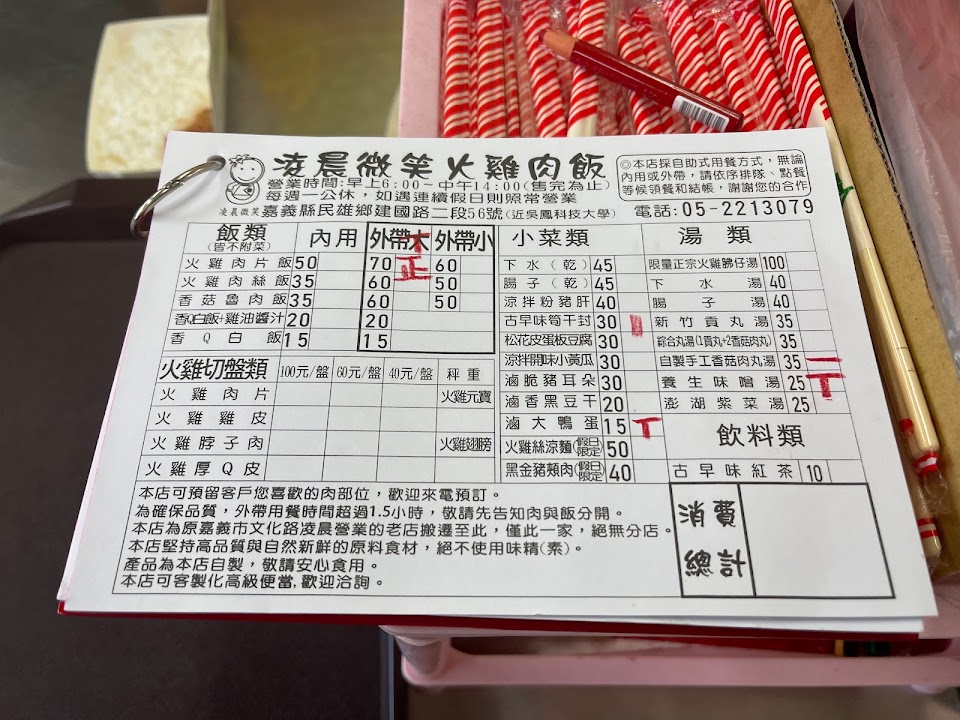 凌晨微笑火雞肉飯
營業時間:早上6:00~中午14:00(售完為止)
每週一公休，如遇連續假日則照常營業
凌晨微笑嘉義縣民雄鄉建國路二段56號(近吳鳳科技大學)
◎本店採自助式用餐方式，無論
內用或外帶，請依序排隊、點餐
等候領餐和結帳，謝謝您的合作
電話:05-2213079
飯類 (皆不附菜) 內用 外帶大 外帶小
火雞肉片飯 50 70 正 60
火雞肉絲飯 35 60 50
香菇魯肉飯 35 60 50
香Q白飯+雞油醬汁 20 20
香Q白飯 15 15
火雞切盤類 100元/盤 60元/盤 40元/盤 秤重
火雞肉片 火雞元寶
火雞雞皮
火雞脖子肉 火雞翅膀
火雞厚Q皮
小菜類
下水(乾) 45
腸子(乾) 45
涼拌粉豬肝 40
古早味筍干封 30
松花皮蛋板豆腐 30
涼拌開味小黃瓜 30
滷脆豬耳朵 30
滷香黑豆干 20
滷大鴨蛋 15 T
火雞絲涼麵(假日限定) 50
黑金豬頰肉(假日限定) 40
湯類
限量正宗火雞胇仔湯 100
下水湯 40
腸子湯 40
新竹貢丸湯 35
綜合丸湯(1貢丸+2香菇肉丸) 35
自製手工香菇肉丸湯 35
養生味噌湯 25 T
澎湖紫菜湯 25
飲料類
古早味紅茶 10
本店可預留客戶您喜歡的肉部位，歡迎來電預訂。
為確保品質，外帶用餐時間超過1.5小時，敬請先告知肉與飯分開。
本店為原嘉義市文化路凌晨營業的老店搬遷至此，僅此一家，絕無分店。
本店堅持高品質與自然新鮮的原料食材，絕不使用味精(素)。
產品為本店自製，敬請安心食用。
本店可客製化高級便當,歡迎洽詢。
消費
總計